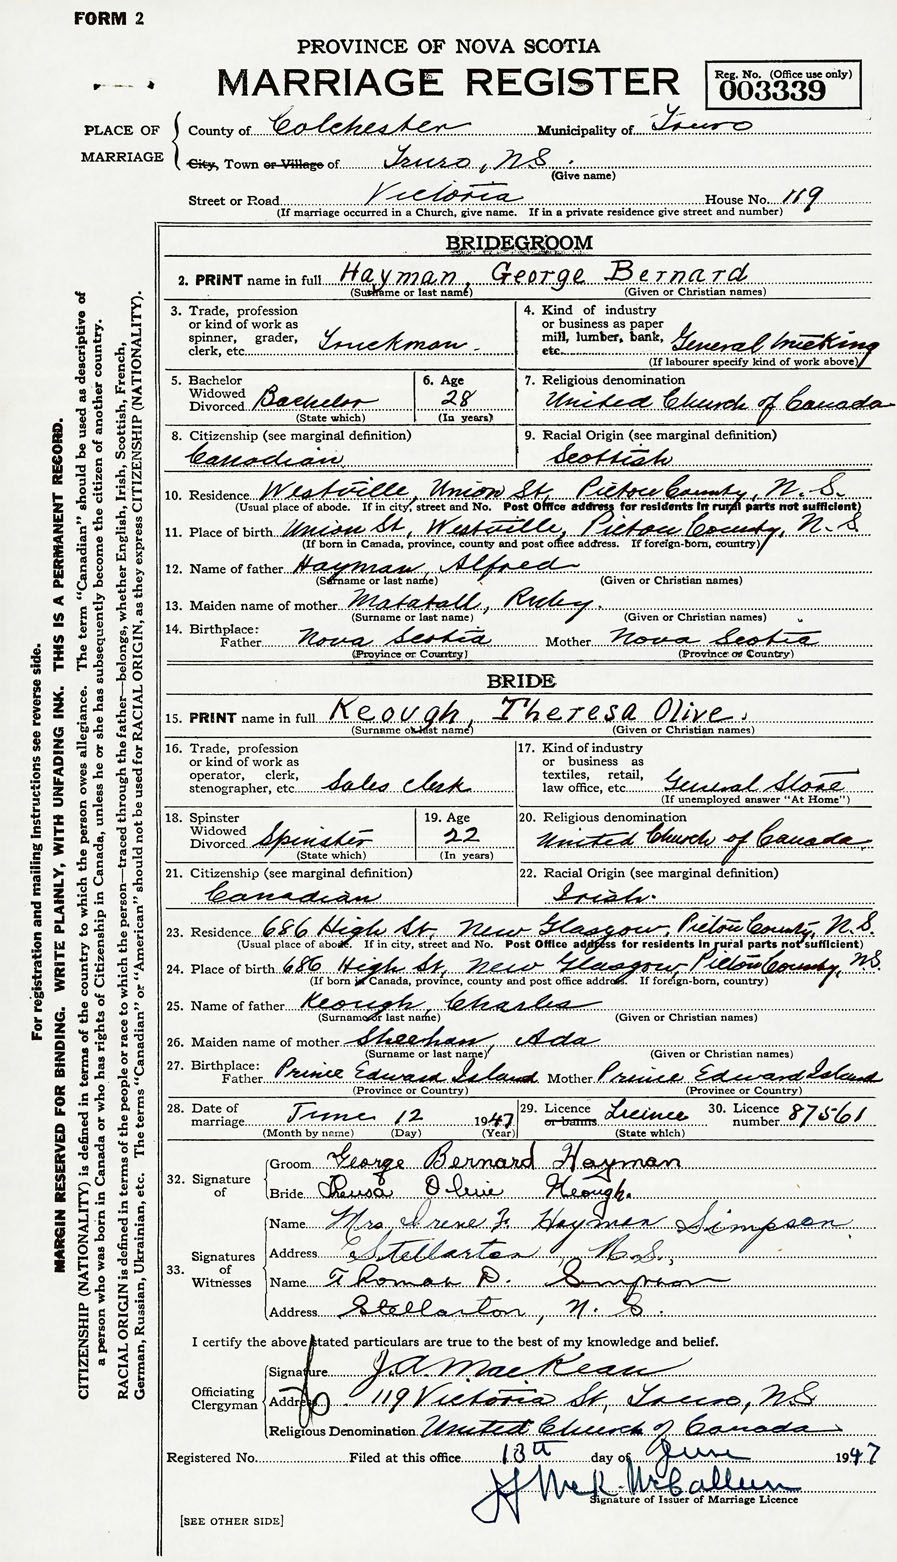 FORM 2
PROVINCE OF NOVA SCOTIA
MARRIAGE REGISTER
Reg. No. (Office use only)
003339
PLACE OF MARRIAGE
County of Colchester Municipality of Truro
City, Town or Village of Truro, N.S.
(Give name)
Street or Road Victoria House No. 119
(If marriage occurred in a Church, give name. If in a private residence give street and number)
BRIDEGROOM
2. PRINT name in full Hayman, George Bernard
(Surname or last name) (Given or Christian names)
3. Trade, profession or kind of work as spinner, grader, clerk, etc. Truckman.
4. Kind of industry or business as paper mill, lumber, bank, etc. General
(If labourer specify kind of work above)
5. Bachelor Widowed Divorced Bachelor
(State which)
6. Age 28
(In years)
7. Religious denomination
United Church of Canada
8. Citizenship (see marginal definition)
Canadian
9. Racial Origin (see marginal definition)
Scottish
10. Residence Westville, Union St, Pictou County, N.S.
(Usual place of abode. If in city, street and No. Post Office address for residents in rural parts not sufficient)
11. Place of birth Union St, Westville, Pictou County, N.S
(If born in Canada, province, county and post office address. If foreign-born, country)
12. Name of father Hayman, Alfred
(Surname or last name) (Given or Christian names)
13. Maiden name of mother Matatall, Ruby.
(Surname or last name) (Given or Christian names)
14. Birthplace: Father Nova Scotia Mother Nova Scotia
(Province or Country) (Province or Country)
BRIDE
15. PRINT name in full Keough, Theresa Olive.
(Surname or last name) (Given or Christian names)
16. Trade, profession or kind of work as operator, clerk, stenographer, etc Sales clerk
17. Kind of industry or business as textiles, retail, law office, etc. General Store
(If unemployed answer "At Home")
18. Spinster Widowed Divorced Spinster
(State which)
19. Age 22
(In years)
20. Religious denomination
United Church of Canada.
21. Citizenship (see marginal definition)
Canadian
22. Racial Origin (see marginal definition)
Irish.
23. Residence 686 High St, New Glasgow, Pictou County, N.S.
(Usual place of abode. If in city, street and No. Post Office address for residents in rural parts not sufficient)
24. Place of birth 686 High St, New Glasgow, Pictou County, N.S.
(If born in Canada, province, county and post office address. If foreign-born, country)
25. Name of father Keough, Charles
(Surname or last name) (Given or Christian names)
26. Maiden name of mother Sheehan, Ada
(Surname or last name) (Given or Christian names)
27. Birthplace: Father Prince Edward Island Mother Prince Edward Island
(Province or Country) (Province or Country)
28. Date of marriage June 12 1947
(Month by name) (Day) (Year)
29. Licence or banns Licence
(State which)
30. Licence number 87561
32. Signature of
Groom George Bernard Hayman
Bride Theresa Olive Keough.
33. Signatures of Witnesses
Name Mrs. Irene F. Hayman Simpson
Address Stellarton, N.S.,
Name Thomas D. Simpson
Address Stellarton, N.S.
I certify the above stated particulars are true to the best of my knowledge and belief.
Officiating Clergyman
Signature J.A. MacKean
Address 119 Victoria St, Truro, N.S
Religious Denomination United Church of Canada
Registered No. Filed at this office 13th day of June 1947
McCallum
Signature of Issuer of Marriage Licence
[SEE OTHER SIDE]
For registration and mailing instructions see reverse side.
MARGIN RESERVED FOR BINDING. WRITE PLAINLY, WITH UNFADING INK. THIS IS A PERMANENT RECORD.
CITIZENSHIP (NATIONALITY) is defined in terms of the country to which the person owes allegiance. The term "Canadian" should be used as descriptive of
a person who was born in Canada or who has rights of Citizenship in Canada, unless he or she has subsequently become the citizen of another country.
RACIAL ORIGIN is defined in terms of the people or race to which the person—traced through the father—belongs, whether English, Irish, Scottish, French,
German, Russian, Ukrainian, etc. The terms "Canadian" or "American" should not be used for RACIAL ORIGIN, as they express CITIZENSHIP (NATIONALITY).